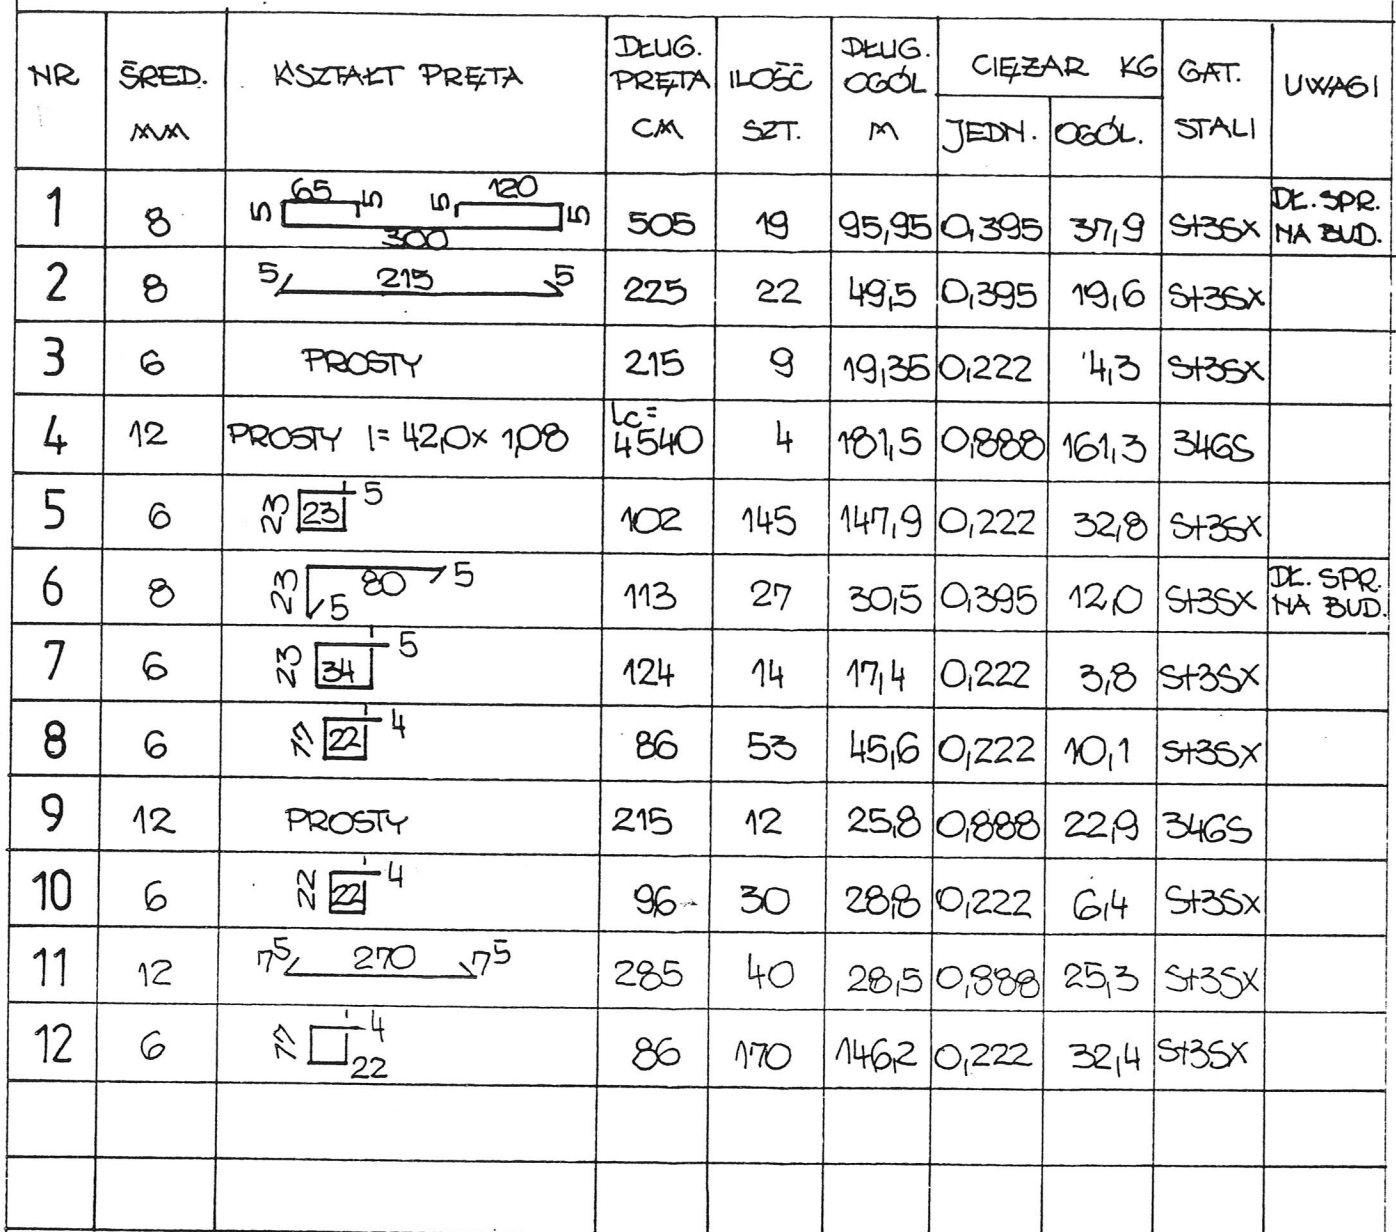 NR ŚRED. MM KSZTAŁT PRĘTA DŁUG. PRĘTA CM ILOŚĆ SZT. DŁUG. OGÓL M CIĘŻAR KG JEDN. OGÓL. GAT. STALI UWAGI
1 8 5 65 5 5 120 5 300 505 19 95,95 0,395 37,9 St3SX DŁ. SPR. NA BUD.
2 8 5 215 5 225 22 49,5 0,395 19,6 St3SX
3 6 PROSTY 215 9 19,35 0,222 4,3 St3SX
4 12 PROSTY l= 42,0x 1,08 Lc= 4540 4 181,5 0,888 161,3 34GS
5 6 23 23 5 102 145 147,9 0,222 32,8 St3SX
6 8 23 5 80 5 113 27 30,5 0,395 12,0 St3SX DŁ. SPR. NA BUD.
7 6 23 34 5 124 14 17,4 0,222 3,8 St3SX
8 6 17 22 4 86 53 45,6 0,222 10,1 St3SX
9 12 PROSTY 215 12 25,8 0,888 22,9 34GS
10 6 22 22 4 96 30 28,8 0,222 6,4 St3SX
11 12 7,5 270 7,5 285 40 28,5 0,888 25,3 St3SX
12 6 17 4 22 86 170 146,2 0,222 32,4 St3SX